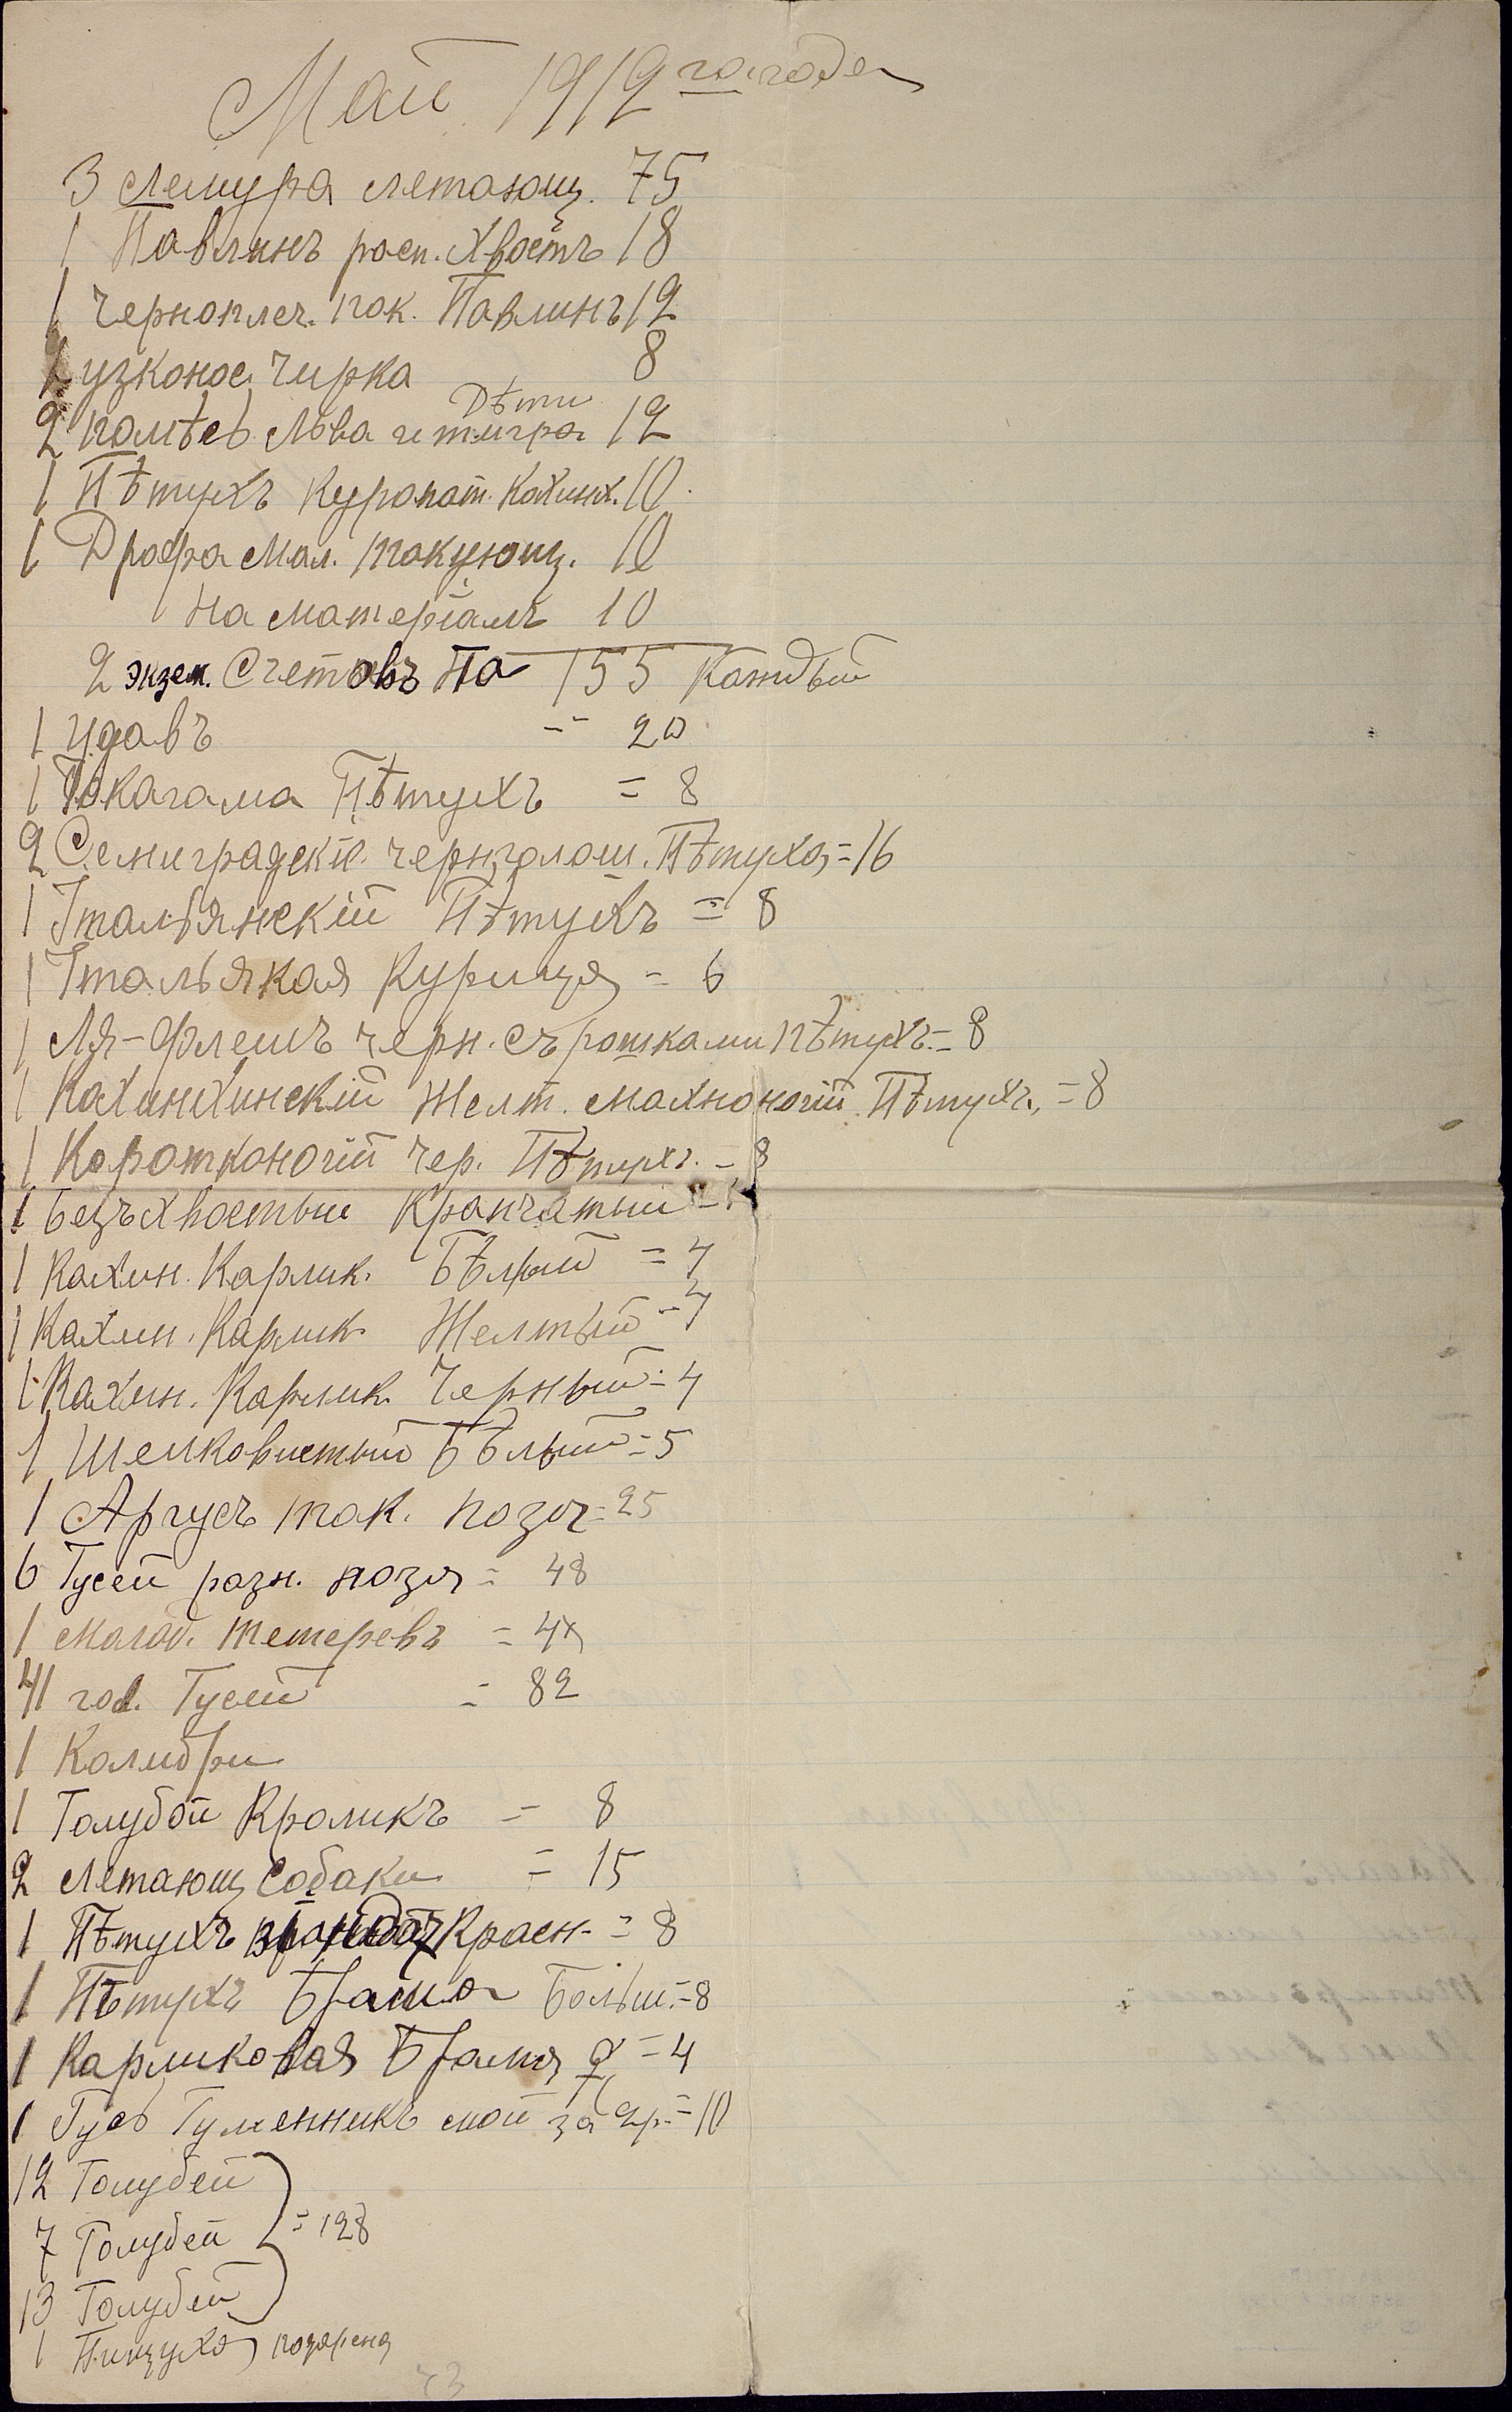 Май 1912 го года
3 Лемура летающ. 75
1 Павлинъ расп. хвостъ 18
1 Черноплеч. пок. Павлинъ 12
2 узконос. Чирка 8
Дѣти
2 помѣсь Льва и тигра 12
1 Пѣтухъ Куропат. Кохинх. 10
1 Дрофа Мал. токующ. 10
На матеріалъ 10
2 экзем. Счетовъ на 155 Каждый
1 Удавъ -- 20
1 Иокагама Пѣтухъ = 8
2 Семиградскія черн. голош. Пѣтуха = 16
1 Італьянскій Пѣтухъ = 8
1 Італьякая Курица = 6
1 Ля-Флешъ черн. съ рошками пѣтухъ = 8
1 Кахинхинскій Желт. мохноногій Пѣтухъ = 8
1 Коротконогій Чер. Пѣтухъ. - 8
1 Безъхвостый Крапчатый
1 Кахин. Карлик. Бѣлый = 4
1 Кахин. Карлик Желтый = 4
1 Кахин. Карлик Черный = 4
1 Шелковистый Бѣлый = 5
1 Аргусъ ток. поза = 25
6 Гусей разн. поза = 48
1 Молод. Тетеревъ = 4
41 гол. Гусей = 82
1 Колибри
1 Голубой Кроликъ = 8
2 Летающ Собаки = 15
1 Пѣтухъ Красн. = 8
1 Пѣтухъ Брама Больш. = 8
1 Карликовая Брама ♀ = 4
1 Гусь Гуменникъ мой за 2р. = 10
12 Голубей
7 Голубей = 128
13 Голубей
1 Пищуха подарена